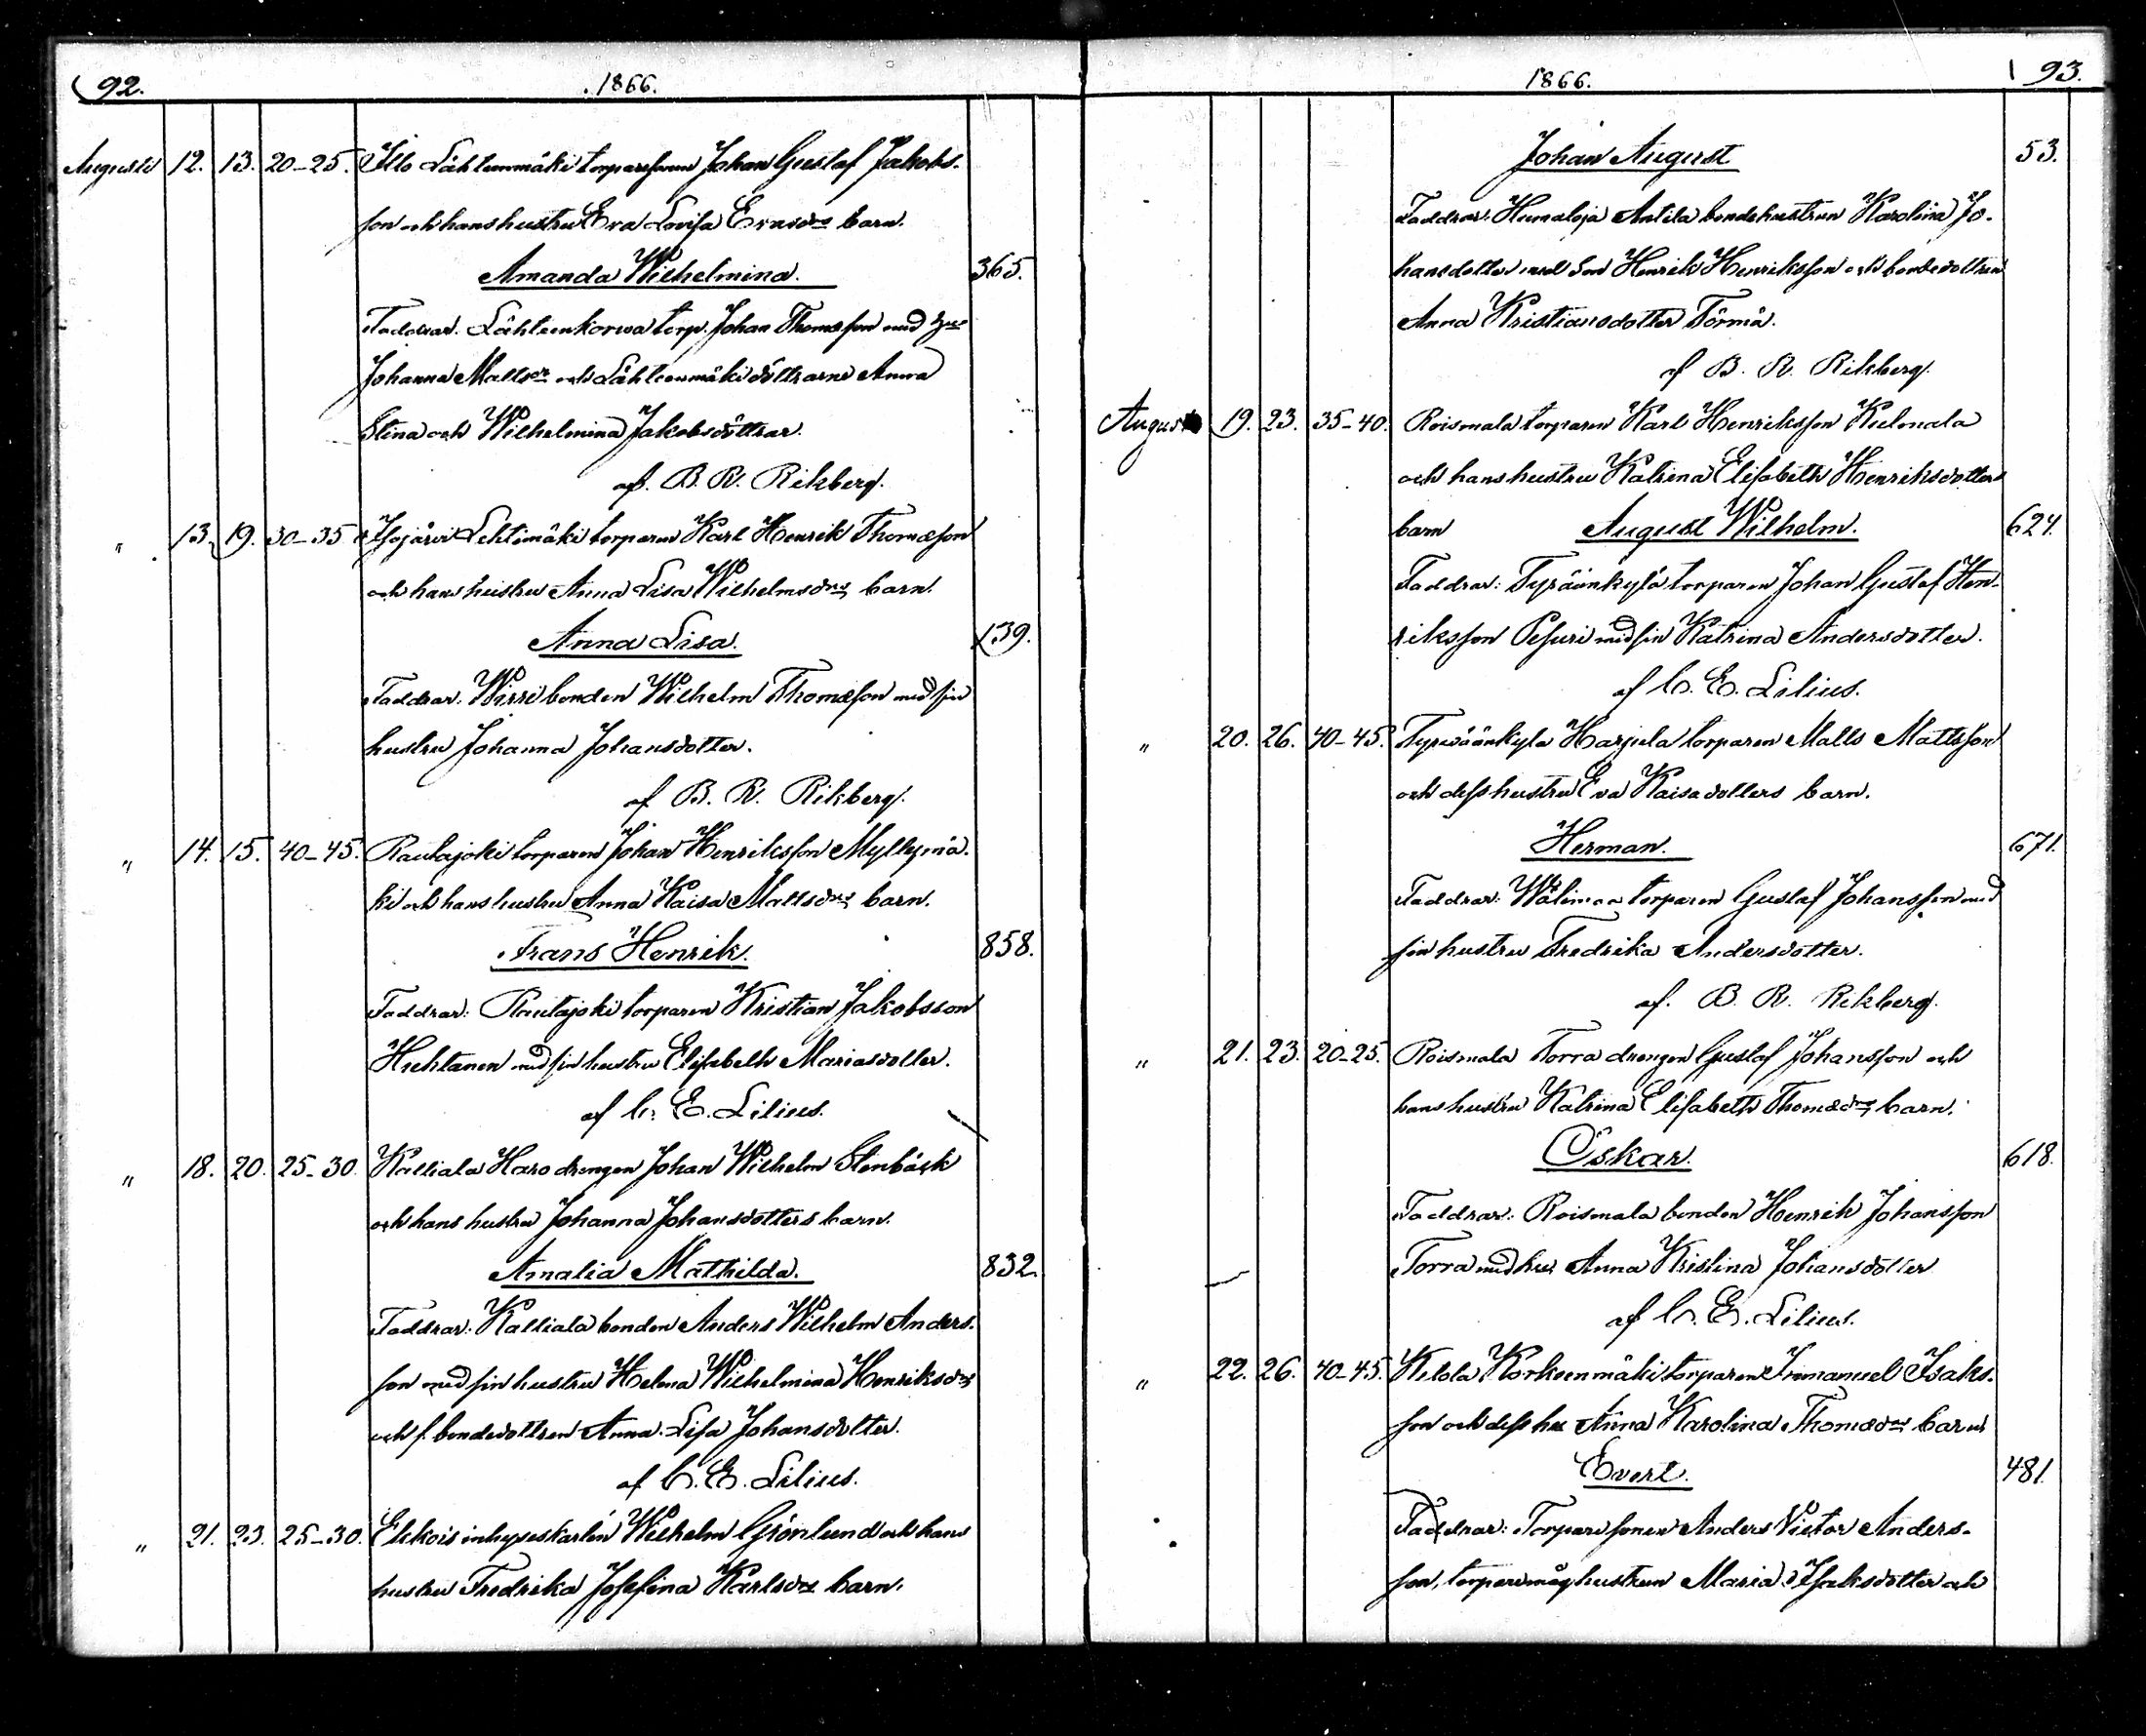 92. 1866.
Augusti 12. 13. 20-25. Illo Lähteenmäki torparesonen Johan Gustaf Jakobs-
son och hans hustru Eva Lovisa Evasdrs barn.
Amanda Wilhelmina. 365.
Faddrar. Lähteenkorva torp. Johan Thomasson med hu
Johanna Mattsdr och Lähteenmäki döttrarne Anna
Stina och Wilhelmina Jakobsdöttrar.
af. B. R. Rikberg.
" 13. 19. 30-35 Isojärvi Lehtimäki torparen Karl Henrik Thomasson
och hans hustru Anna Lisa Wilhelmsdrs barn.
Anna Lisa. 139.
Faddrar: Wirri bonden Wilhelm Thomasson med sin
hustru Johanna Johansdotter.
af B. R. Rikberg.
" 14. 15. 40-45. Rautajoki torparen Johan Henriksson Myllymä-
ki och hans hustru Anna Kaisa Mattsdrs barn.
Frans Henrik. 858.
Faddrar: Rautajoki torparen Kristian Jakobsson
Huhtanen med sin hustru Elisabeth Mariasdotter.
af C. E. Lilius.
" 18. 20. 25-30. Kalliala Haro drengen Johan Wilhelm Stenbäck
och hans hustru Johanna Johansdotters barn.
Amalia Mathilda. 832.
Faddrar: Kalliala bonden Anders Wilhelm Anders-
son med sin hustru Helena Wilhelmina Henriksdr
och f. bondedottren Anna Lisa Johansdotter.
af C. E. Lilius.
" 21. 23. 25-30. Ekkois inhyseskarlen Wilhelm Grönlund och hans
hustru Fredrika Josefina Karlsdrs barn.
1866. 93.
Johan August 53.
Faddrar: Humaloja Antila bondehustrun Karolina Jo-
hansdotter med son Henrik Henriksson och bondedottren
Anna Kristiansdotter Törmä.
af B. R. Rikberg.
Augusti 19. 23. 35-40. Roismala torparen Karl Henriksson Kulmala
och hans hustru Katrina Elisabeth Henriksdotters
barn August Wilhelm. 624.
Faddrar: Tyrväänkylä torparen Johan Gustaf Hen-
riksson Pesuri med sin Katrina Andersdotter.
af C. E. Lilius.
" 20. 26. 40-45. Tyrväänkylä Harjula torparen Matts Mattsson
och dess hustru Eva Kaisadotters barn.
Herman. 671.
Faddrar: Wälimaa torparen Gustaf Johansson med
sin hustru Fredrika Andersdotter.
af. B. R. Rikberg.
" 21. 23. 20-25. Roismala Torra drengen Gustaf Johansson och
hans hustru Katrina Elisabeth Thomasdrs barn.
Oskar. 618.
Faddrar: Roismala bonden Henrik Johansson
Torra med hu Anna Kristina Johansdotter
af C. E. Lilius.
" 22. 26. 40-45. Ketola Korkeenmäki torparen Immanuel Isaks-
son och dess hu Anna Karolina Thomasdrs barn
Evert. 481.
Faddrar: Torparesonen Anders Victor Anders-
son, torparemåg hustrun Maria Isaksdotter och